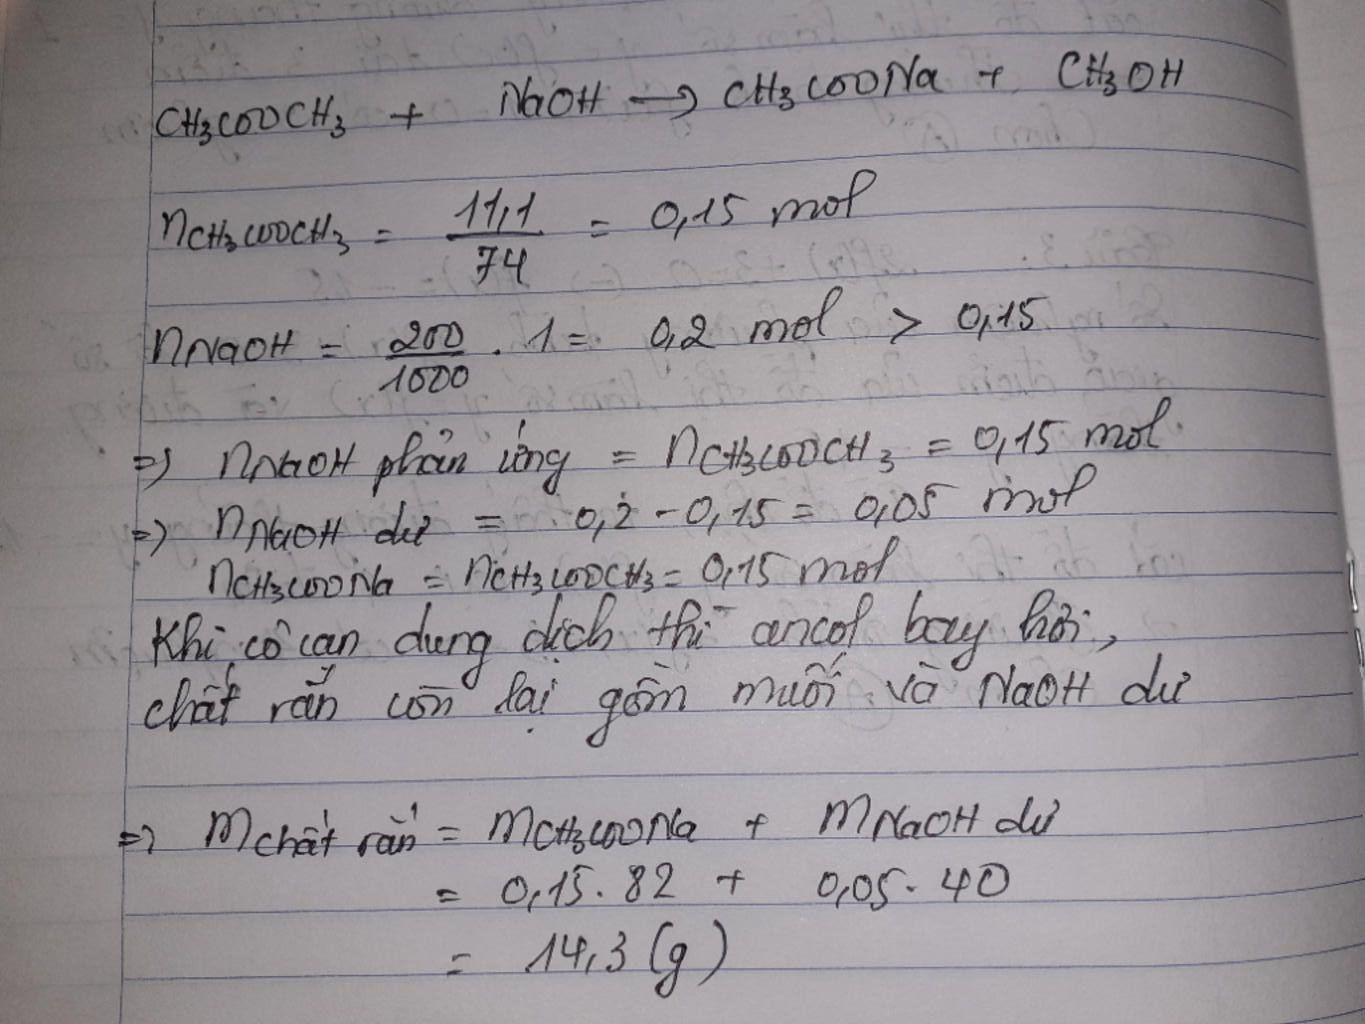 CH3COOCH3 + NaOH → CH3COONa + CH3OH
nCH3COOCH3 = 11,1/74 = 0,15 mol
nNaOH = 200/1000 . 1 = 0,2 mol > 0,15
=> nNaOH phản ứng = nCH3COOCH3 = 0,15 mol.
=> nNaOH dư = 0,2 - 0,15 = 0,05 mol
nCH3COONa = nCH3COOCH3 = 0,15 mol
Khi cô cạn dung dịch thì ancol bay hơi,
chất rắn còn lại gồm muối và NaOH dư
=> mchất rắn = mCH3COONa + mNaOH dư
= 0,15 . 82 + 0,05 . 40
= 14,3 (g)